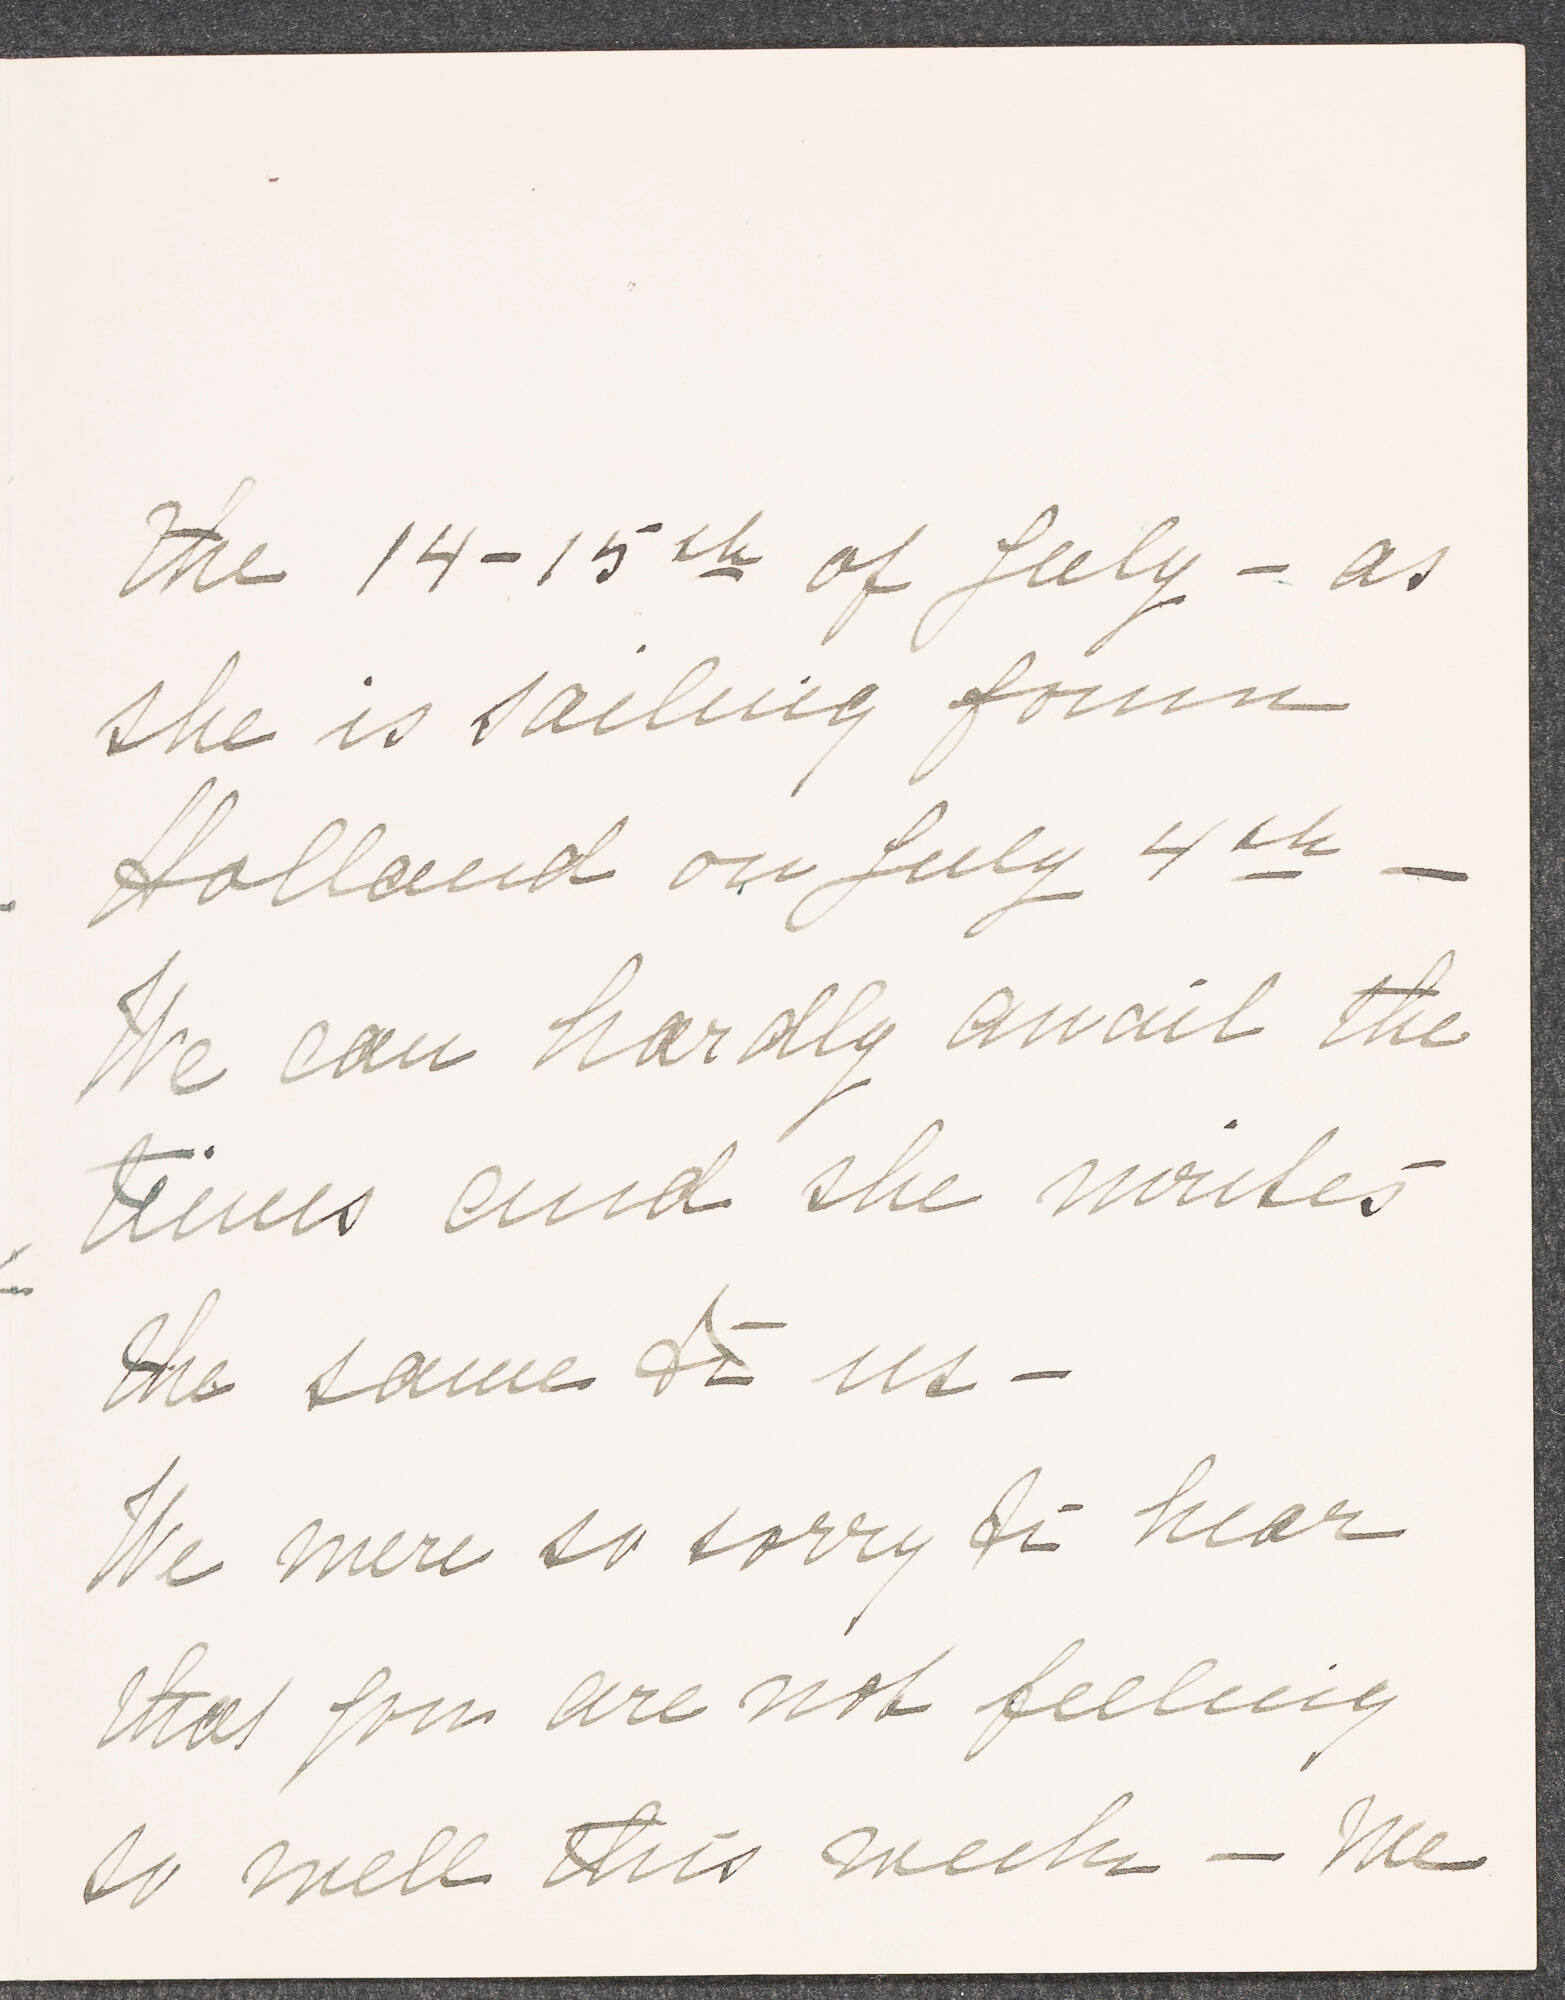 the 14-15th of July - as
she is sailing from
Holland on July 4th -
We can hardly await the
times and she writes
the same to us -
We were so sorry to hear
that you are not feeling
so well this week - We